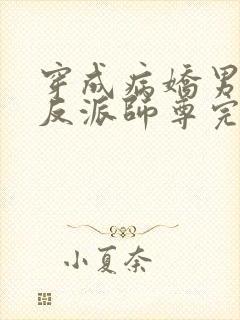 穿成病嬌男
反派師尊完
小夏奈